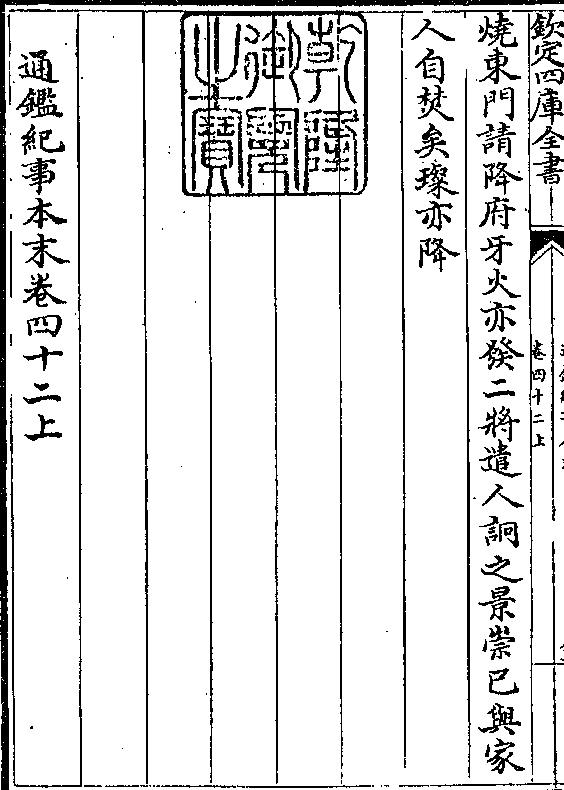 欽定四庫全書
卷四十二上
燒東門請降府牙火亦發二將遣人詗之景崇已與家
人自焚矣璨亦降
乾隆御覽之寶
通鑑紀事本末卷四十二上